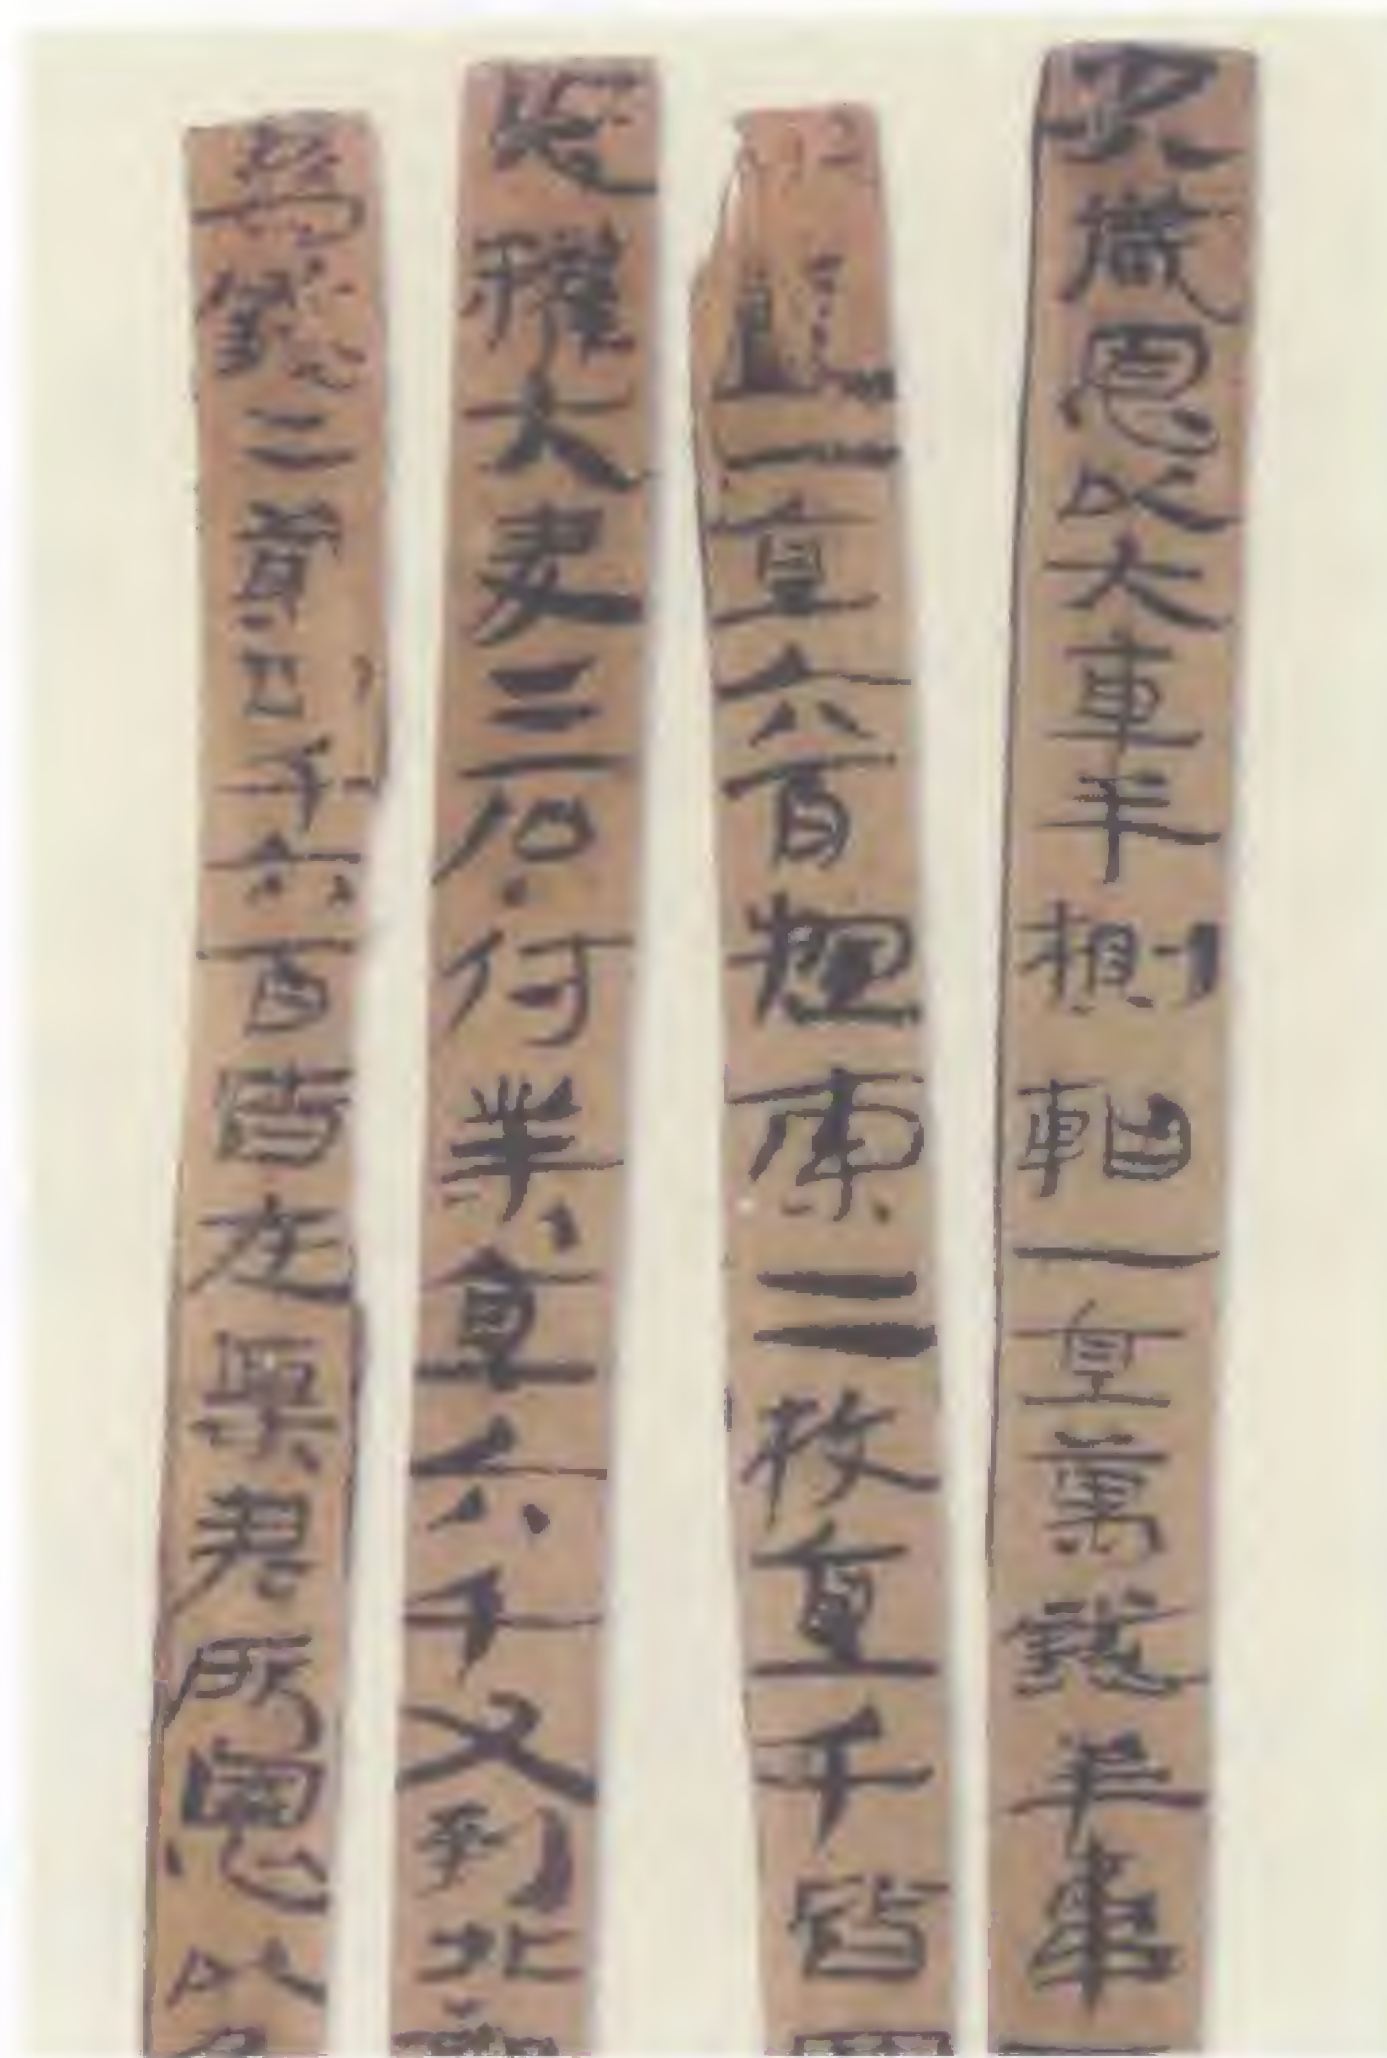 恩以大車半㯡軸一直萬錢羊韋一
一直六百㯡索二枚直千皆
恩糴大麥二石付業直六千又到北
為錢二萬四千六百皆在粟君所恩以